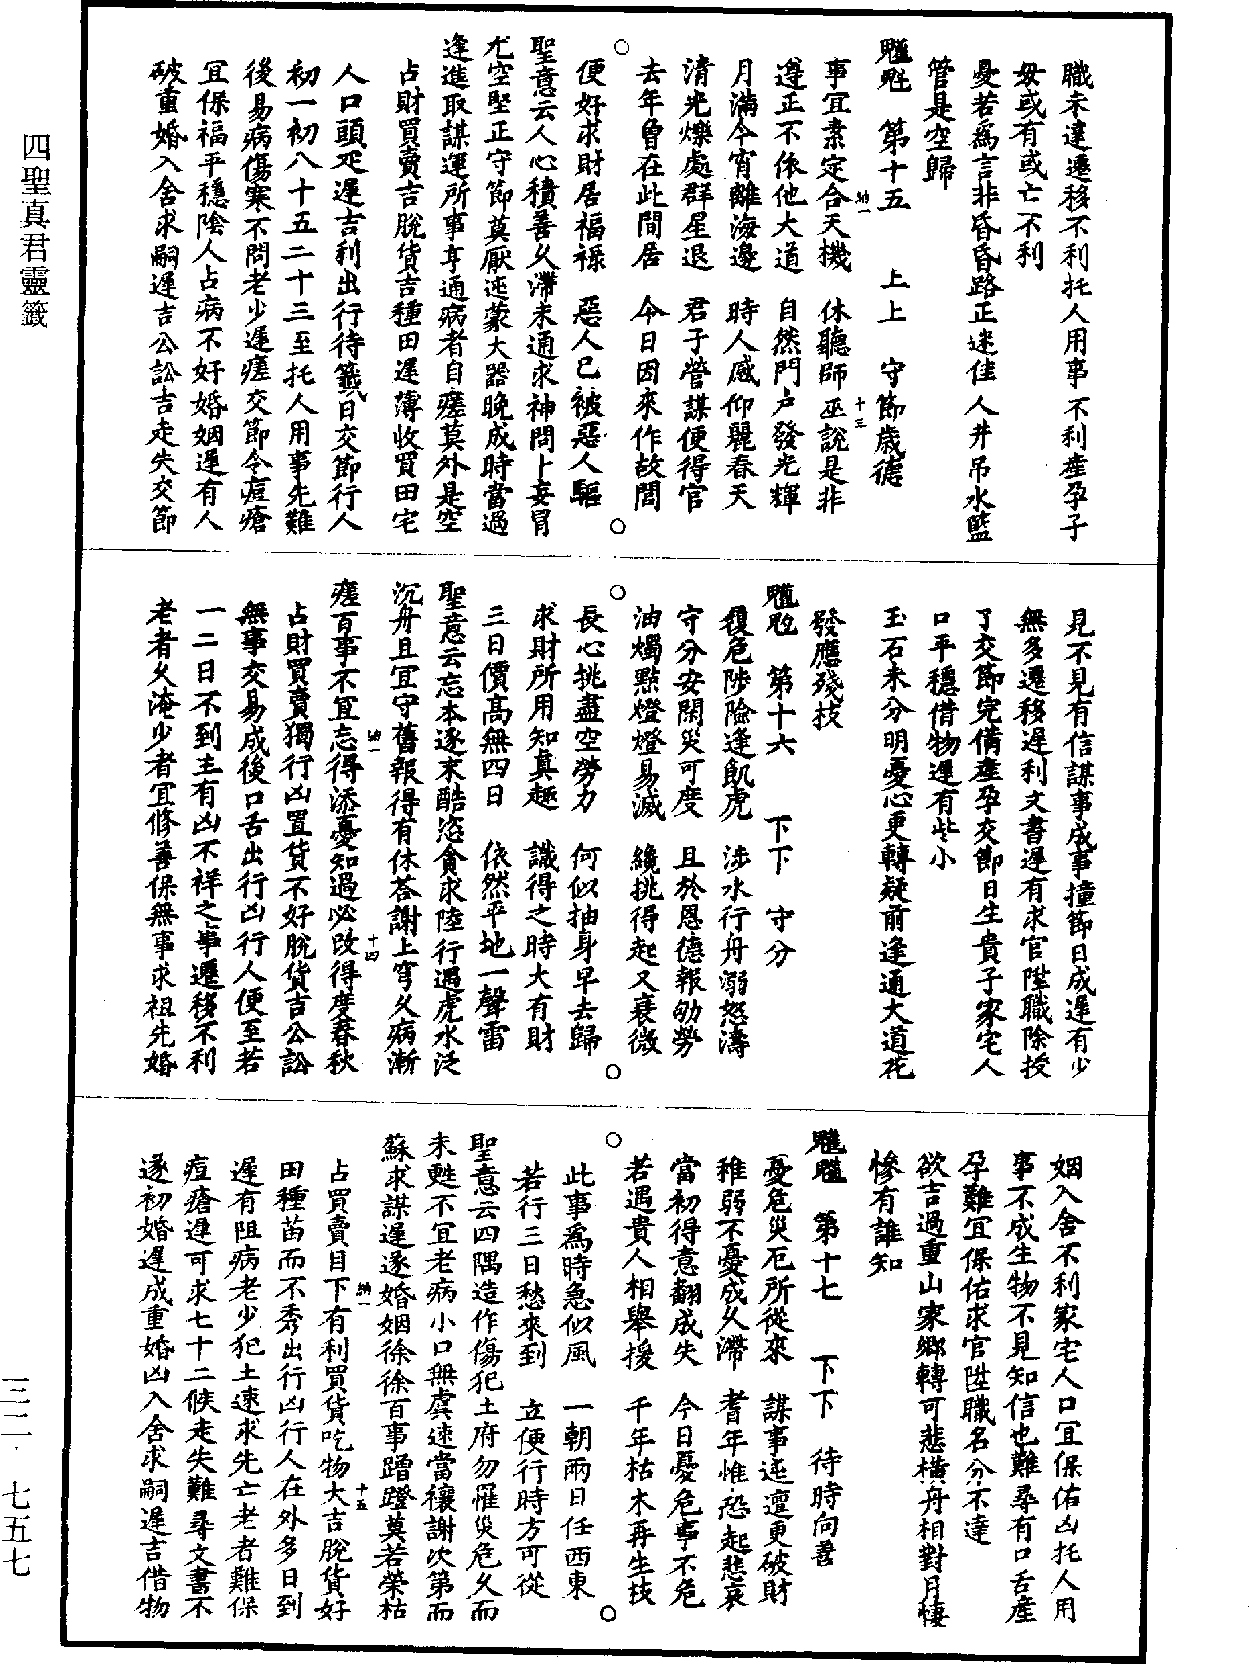 職未達遷移不利托人用事不利產孕子
母或有或亡不利
憂若為言非昏昏路正迷佳人井吊水藍
管是空歸
第十五　上上　守節歲德
事宜素定合天機　休聽師巫說是非
遵正不依他大道　自然門戶發光輝
月滿今宵離海邊　時人感仰麗春天
清光爍處群星退　君子營謀便得官
去年曾在此間居　今日因來作故閭
便好求財居福祿　惡人已被惡人驅
聖意云人心積善久滯未通求神問卜妄冒
尤空堅正守節莫厭迍蒙大器晚成時當過
逢進取謀運所事亨通病者自瘥莫外是空
占財買賣吉脫貨吉種田遲薄收買田宅
人口頭疋遲吉利出行待籤日交節行人
初一初八十五二十三至托人用事先難
後易病傷寒不問老少遲瘥交節令痘瘡
宜保福平穩陰人占病不好婚姻遲有人
破重婚入舍求嗣遲吉公訟吉走失交節
見不見有信謀事成事撞節日成遲有少
無多遷移遲利文書遲有求官陞職除授
了交節完備產孕交節日生貴子家宅人
口平穩借物遲有些小
玉石未分明憂心更轉疑前逢通大道花
發應殘枝
第十六　下下　守分
履危陟險逢飢虎　涉水行舟溺怒濤
守分安閑災可度　且於恩德報劬勞
油燭點燈燈易滅　纔挑得起又衰微
長心挑盡空勞力　何似抽身早去歸
求財所用知真趣　識得之時大有財
三日價高無四日　依然平地一聲雷
聖意云忘本逐末酷恣貪求陸行遇虎水泛
沉舟且宜守舊報得有休荅謝上穹久病漸
瘥百事不宜忘得添憂知過必改得度春秋
占財買賣獨行凶置貨不好脫貨吉公訟
無事交易成後口舌出行凶行人便至若
一二日不到主有凶不祥之事遷移不利
老者久淹少者宜修善保無事求祖先婚
姻入舍不利家宅人口宜保佑凶托人用
事不成生物不見知信也難尋有口舌產
孕難宜保佑求官陞職名分不達
欲吉過重山家鄉轉可悲橫舟相對月悽
慘有誰知
第十七　下下　待時向善
憂危災厄所從來　謀事迍邅更破財
稚弱不憂成久滯　耆年惟恐起悲哀
當初得意翻成失　今日憂危事不危
若遇貴人相舉援　千年枯木再生枝
此事為時急似風　一朝兩日任西東
若行三日愁來到　立便行時方可從
聖意云四隅造作傷犯土府勿罹災危久而
未甦不宜老病小口無虞速當禳謝次第而
蘇求謀遲遂婚姻徐徐百事蹭蹬莫若榮枯
占買賣目下有利買貨吃物大吉脫貨好
田種苗而不秀出行凶行人在外多日到
遲有阻病老少犯土速求先亡老者難保
痘瘡遲可求七十二候走失難尋文書不
遂初婚遲成重婚凶入舍求嗣遲吉借物
四聖真君靈籤
三二·七五七